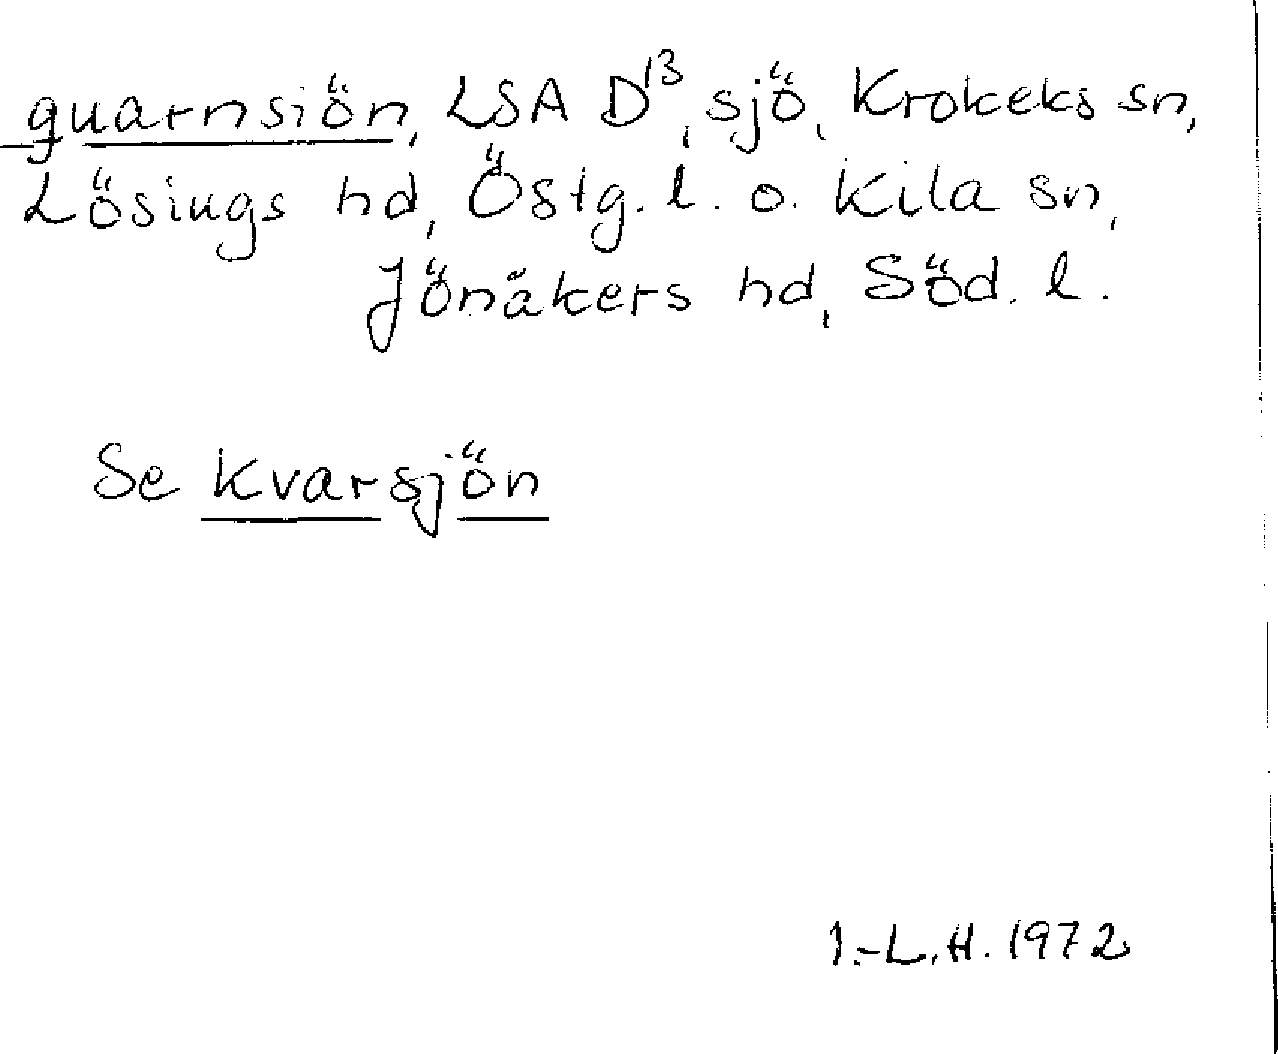 quarnsiön, LSA D¹³, sjö, Krokeks sn,
Lösings hd, Östg. l. o. Kila sn,
Jönåkers hd, Söd. l.
Se Kvarsjön
I.-L. H. 1972